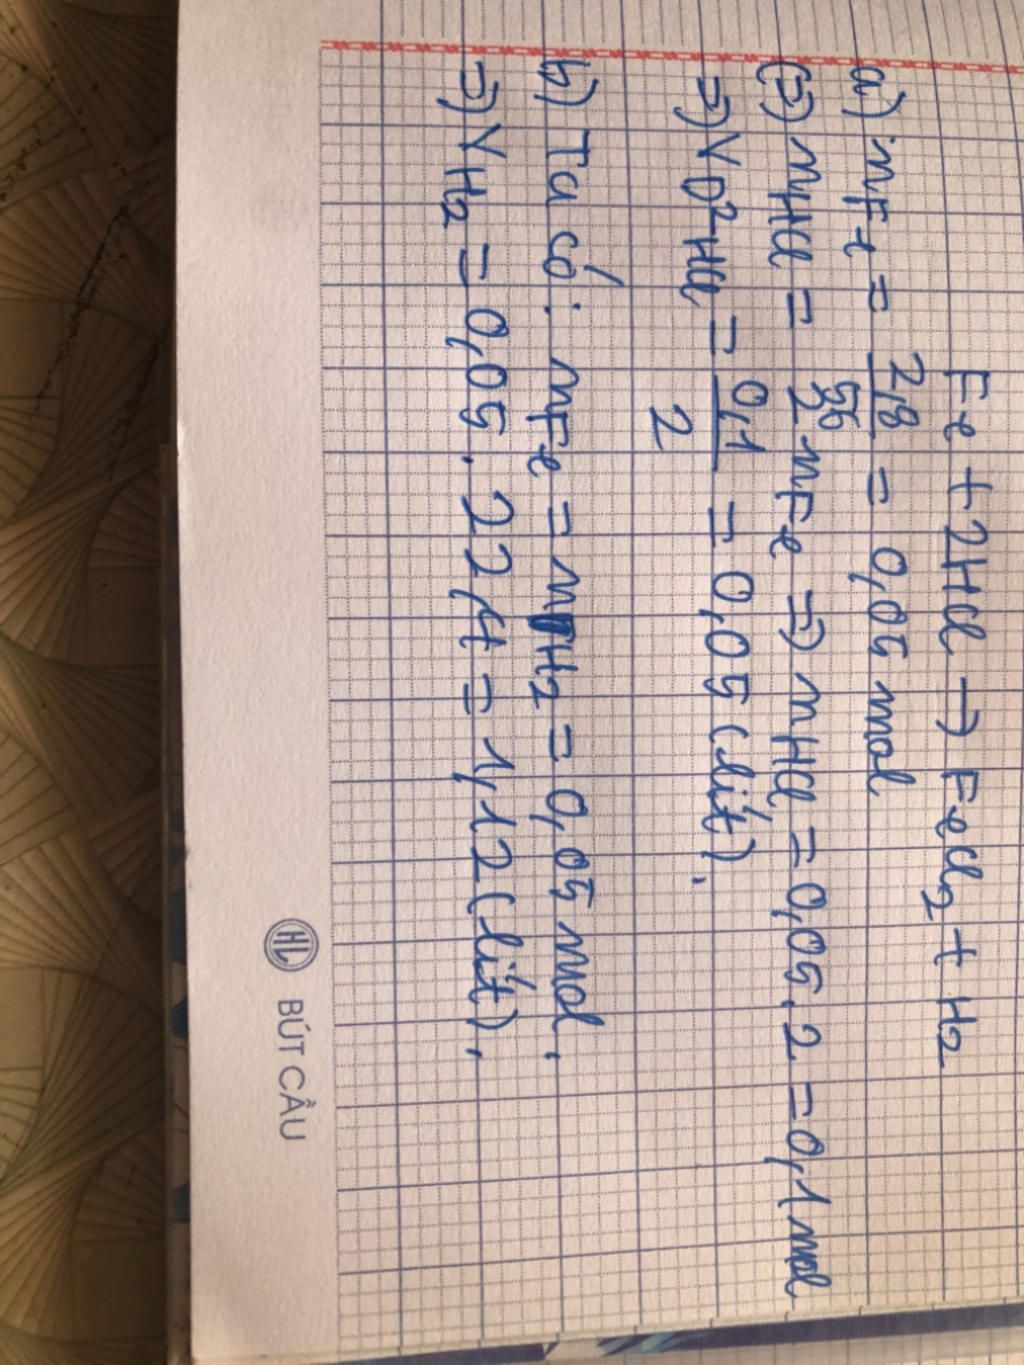 Fe + 2HCl → FeCl2 + H2
a) nFe = 2,8/56 = 0,05 mol
(=) nHCl = 2nFe => nHCl = 0,05.2 = 0,1 mol
=) VD2HCl = 0,1/2 = 0,05 (lít).
b) Ta có: nFe = nH2 = 0,05 mol.
=) VH2 = 0,05.22,4 = 1,12 (lít).
HL BÚT CẦU